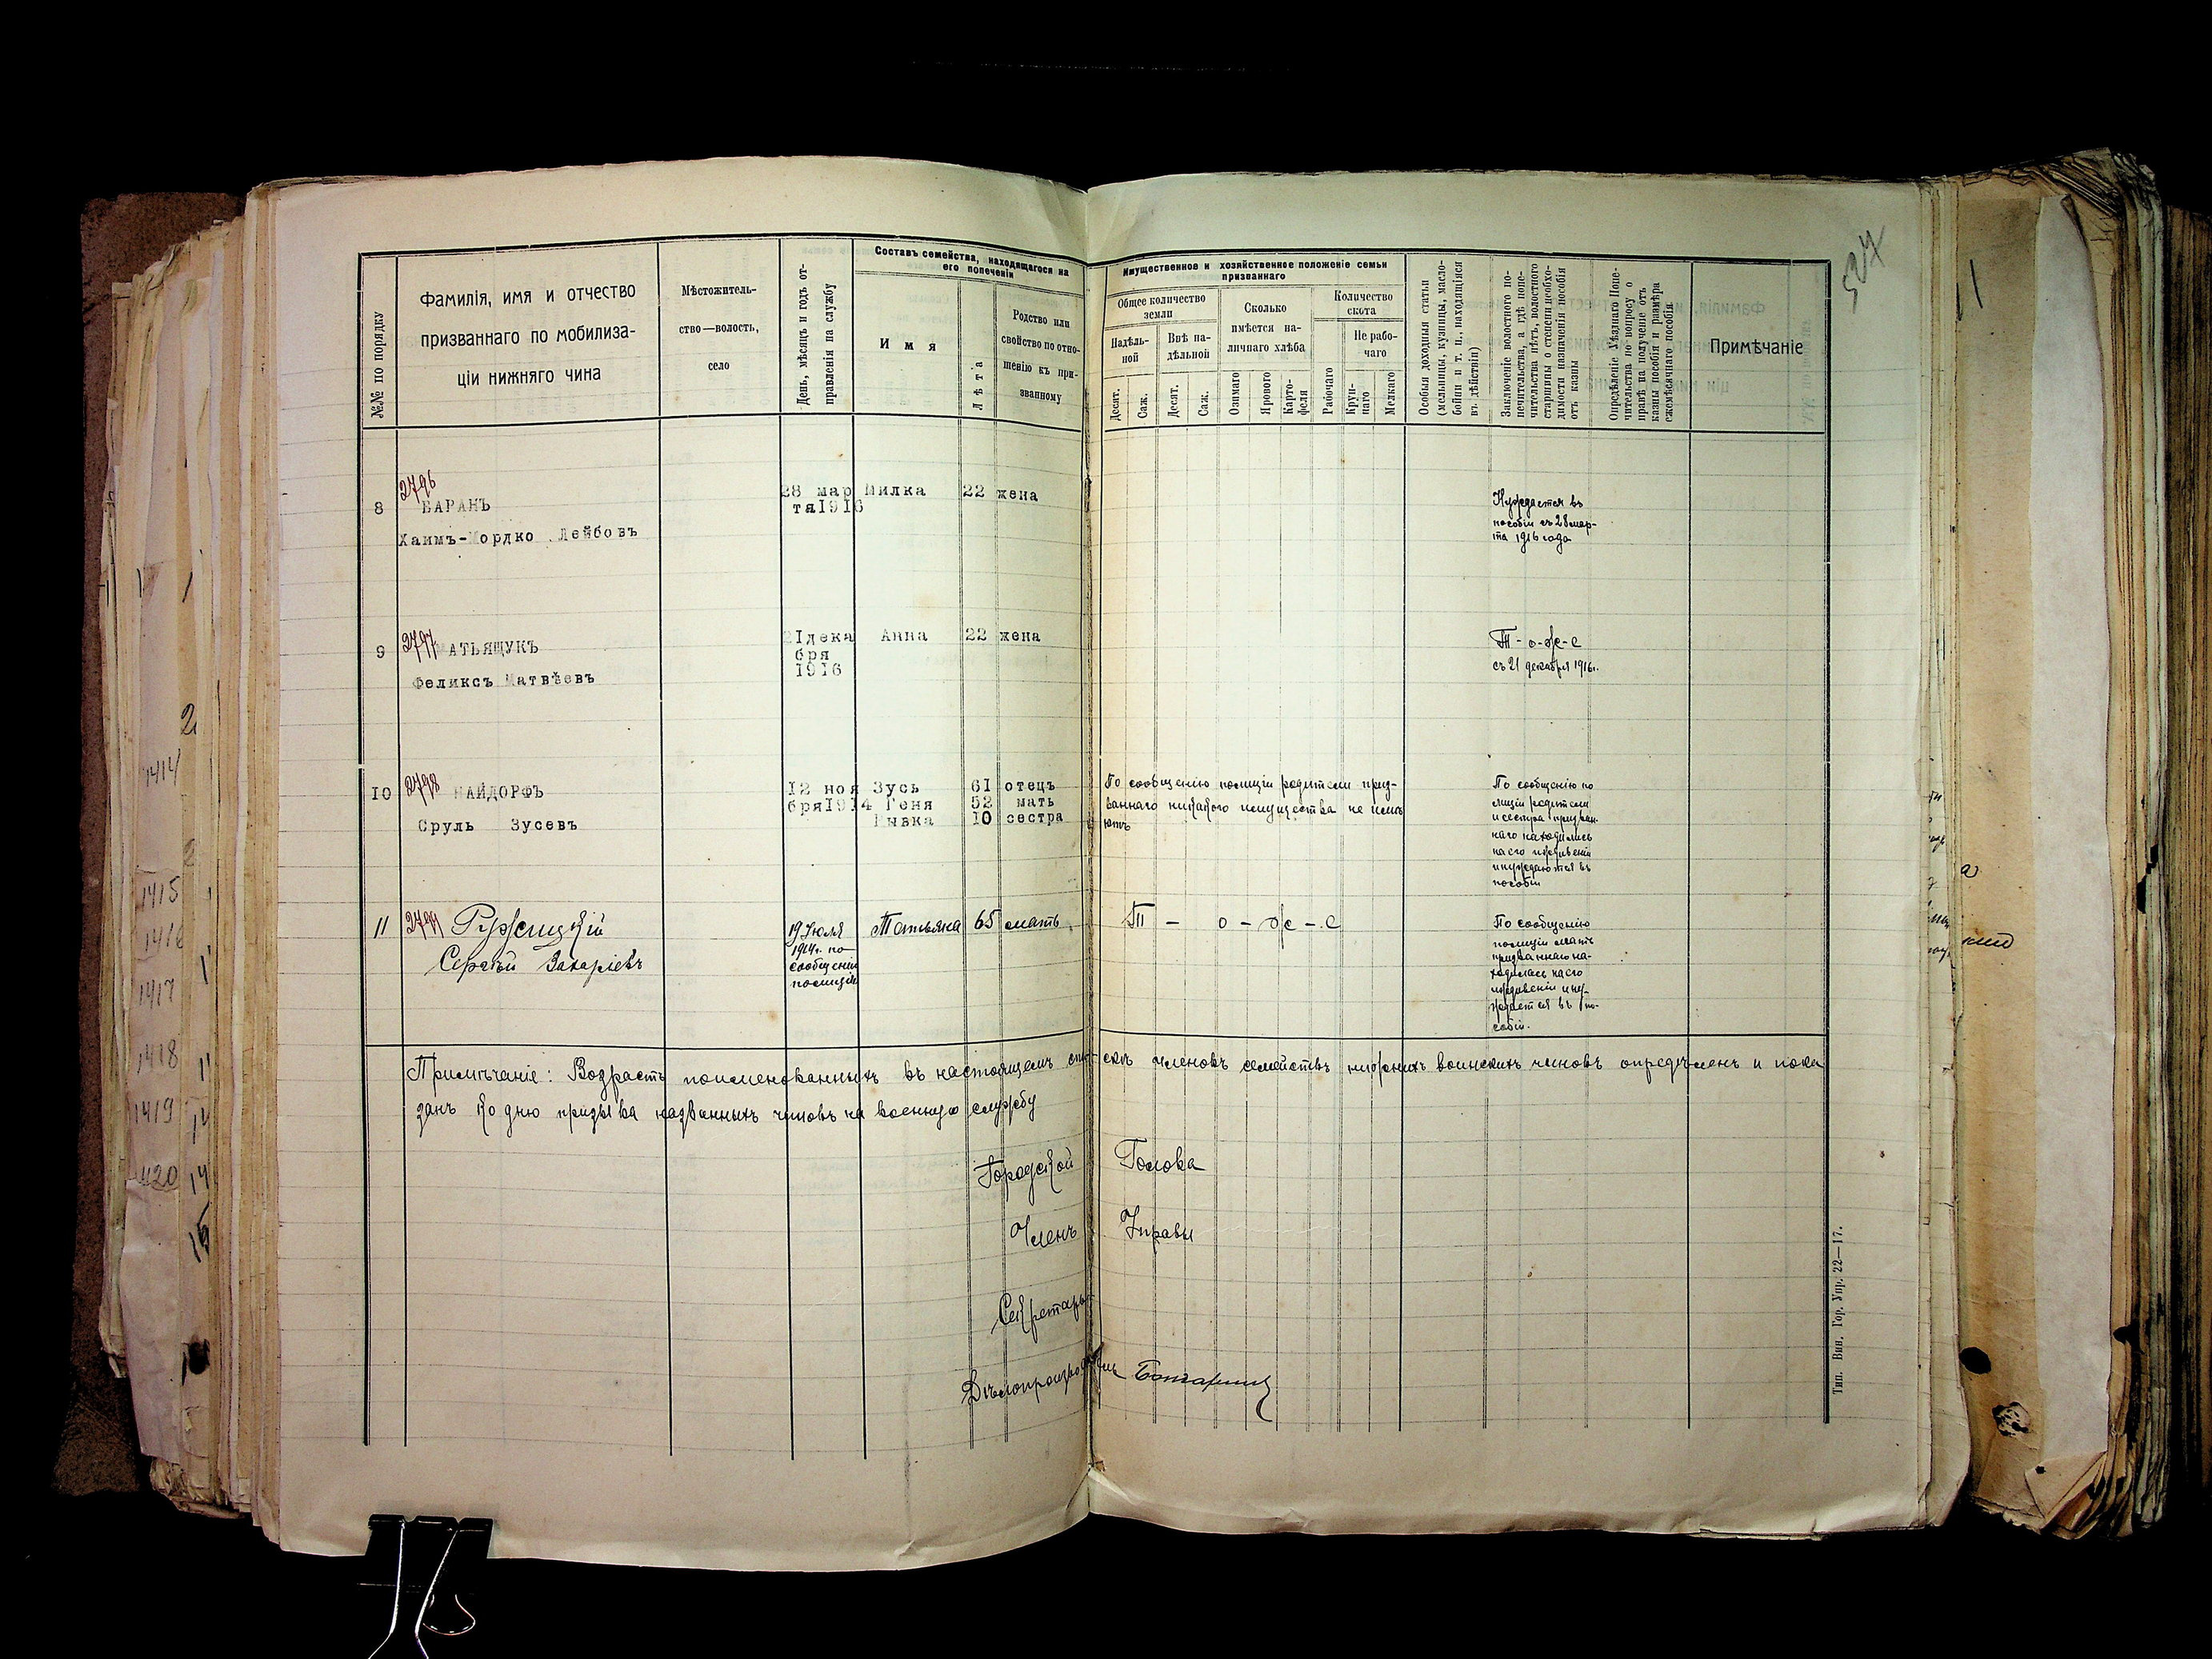 527
№№ по порядку
Фамилія, имя и отчество
призваннаго по мобилиза-
ціи нижняго чина
Мѣстожитель-
ство—волость,
село
День, мѣсяцъ и годъ от-
правленія на службу
Составъ семейства, находящагося на
его попеченіи
Имя
Лѣта
Родство или
свойство по отно-
шенію къ при-
званному
Имущественное и хозяйственное положеніе семьи
призваннаго
Общее количество
земли
Надѣль-
ной
Внѣ на-
дѣльной
Десят.
Саж.
Десят.
Саж.
Сколько
имѣется на-
личнаго хлѣба
Озимаго
Ярового
Карто-
феля
Количество
скота
Рабочаго
Не рабо-
чаго
Круп-
наго
Мелкаго
Особыя доходныя статьи
(мельницы, кузницы, масло-
бойни и т. п., находящіяся
въ дѣйствіи)
Заключеніе волостного по-
печительства, а гдѣ попе-
чительства нѣтъ, волостного
старшины о степени необхо-
димости назначенія пособія
отъ казны
Опредѣленіе Уѣзднаго Попе-
чительства по вопросу о
правѣ на полученіе отъ
казны пособія и размѣра
ежемѣсячнаго пособія
Примѣчаніе
8
2796
БАРАНЪ
Хаимъ-Мордко Лейбовъ
28 мар
та1916
Милка 22 жена
Нуждается въ
пособіи съ 28 мар-
та 1916 года
9
2797
МАТЬЯЩУКЪ
Феликсъ Матвѣевъ
21дека
бря
1916
Анна 22 жена
Т-о-ж-е
съ 21 декабря 1916г.
10
2798
НАЙДОРФЪ
Сруль Зусевъ
12 ноя
бря1914
Зусь 61 отецъ
Геня 52 мать
Рывка 10 сестра
По сообщенію полиціи родители приз-
ваннаго никакого имущества не имѣ
ютъ
По сообщенію по
лиціи родители
и сестра призван-
наго находились
на его иждивеніи
и нуждаются въ
пособіи
11
2799
Ружицкій
Сергѣй Захаріевъ
19 Іюля
1914г. по
сообщенію
полиціи
Татьяна 65 мать
Т - о - ж - е
По сообщенію
полиціи мать
призваннаго на-
ходилась на его
иждивеніи и ну-
ждается въ по-
собіи.
Примѣчаніе: Возрастъ поименованныхъ въ настоящемъ спи-скѣ членовъ семействъ нижнихъ воинскихъ чиновъ опредѣленъ и пока
занъ ко дню призыва названныхъ чиновъ на военную службу
Городской Голова
Членъ Управы
Секретарь
Дѣлопроизводитель
Тип. Вин. Гор. Упр. 22—17.
2
1414
1415
1416
1417
1418
1419
1420
11
14
14
15